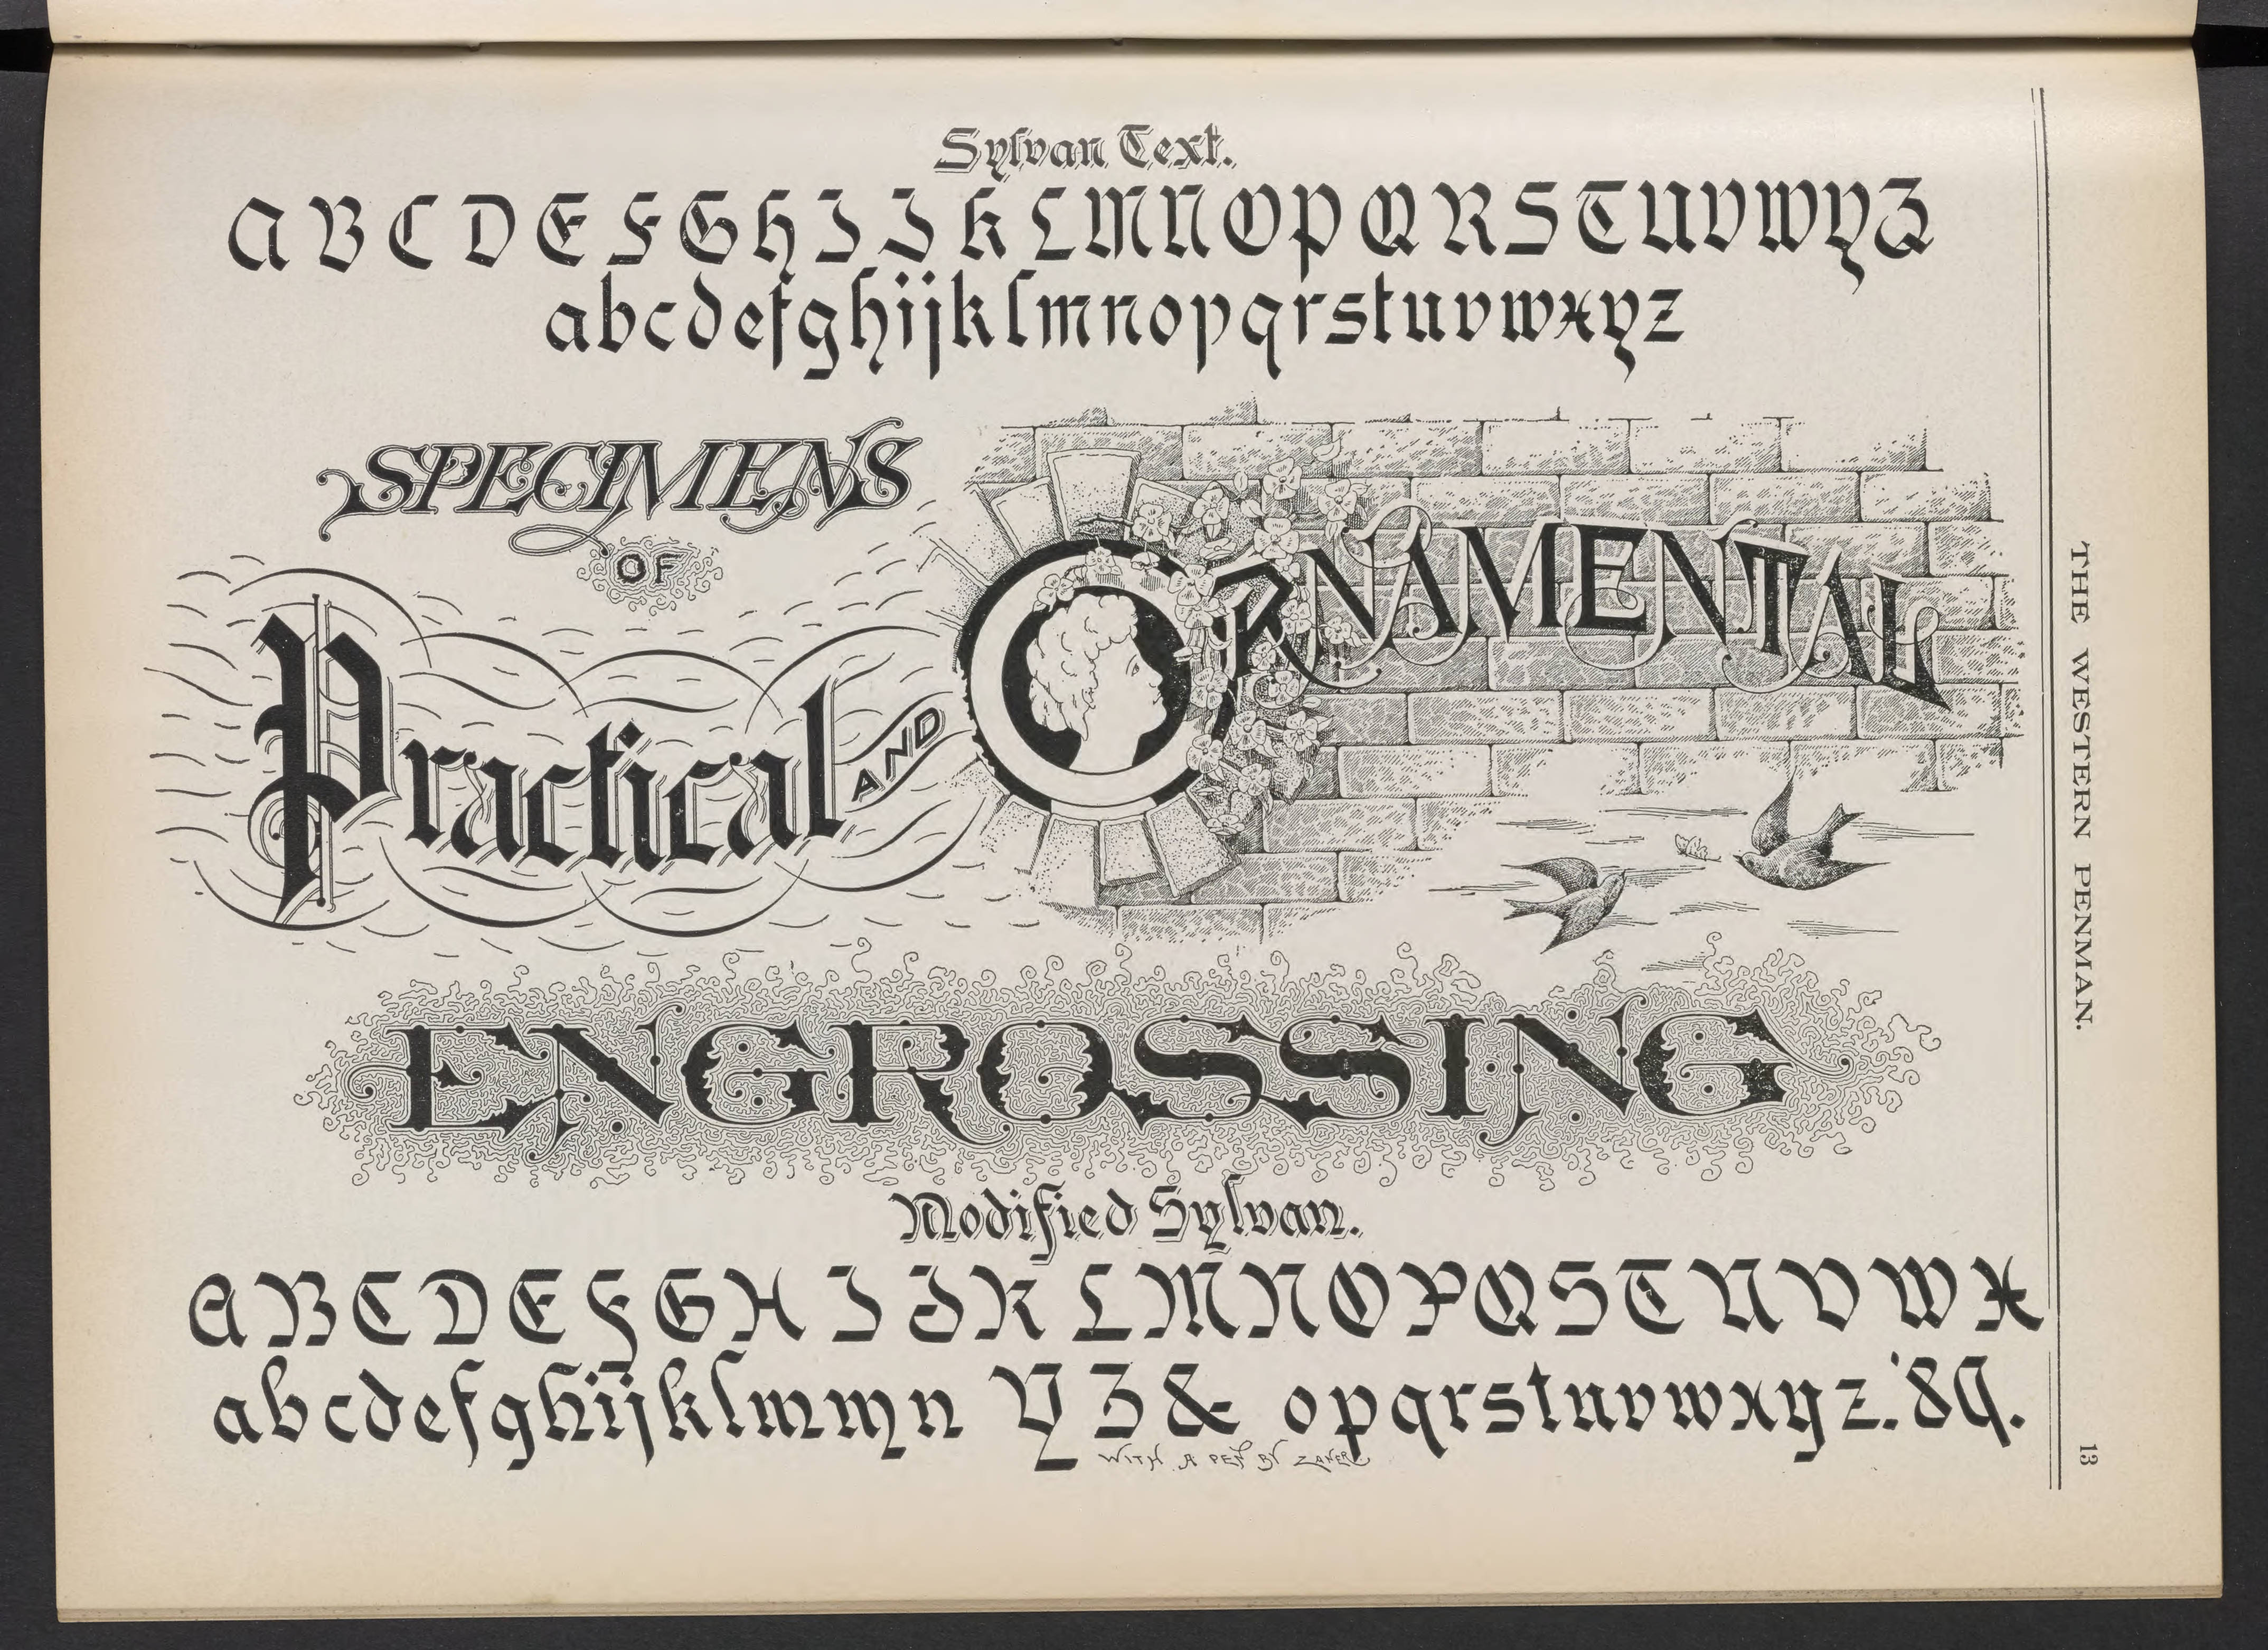 Sylvan Text.
A B C D E F G H I J K L M N O P Q R S T U V W Y Z
a b c d e f g h i j k l m n o p q r s t u v w x y z
SPECIMENS
OF
Practical AND ORNAMENTAL
ENGROSSING
Modified Sylvan.
A B C D E F G H I J K L M N O P Q S T U V W X
a b c d e f g h i j k l m m n Y Z & o p q r s t u v w x y z .' & q.
WITH A PEN BY ZANER
THE WESTERN PENMAN.
13